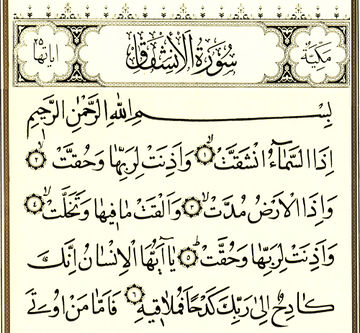 مكية سورة الانشقاق آياتها ٢٥
بِسْمِ اللّٰهِ الرَّحْمٰنِ الرَّحٖيمِ
اِذَا السَّمَٓاءُ انْشَقَّتْۙ ١ وَاَذِنَتْ لِرَبِّهَا وَحُقَّتْۙ ٢
وَاِذَا الْاَرْضُ مُدَّتْۙ ٣ وَاَلْقَتْ مَا فٖيهَا وَتَخَلَّتْۙ ٤
وَاَذِنَتْ لِرَبِّهَا وَحُقَّتْۜ ٥ يَٓا اَيُّهَا الْاِنْسَانُ اِنَّكَ
كَادِحٌ اِلٰى رَبِّكَ كَدْحًا فَمُلَاقٖيهِۚ ٦ فَاَمَّا مَنْ اُو۫تِيَ